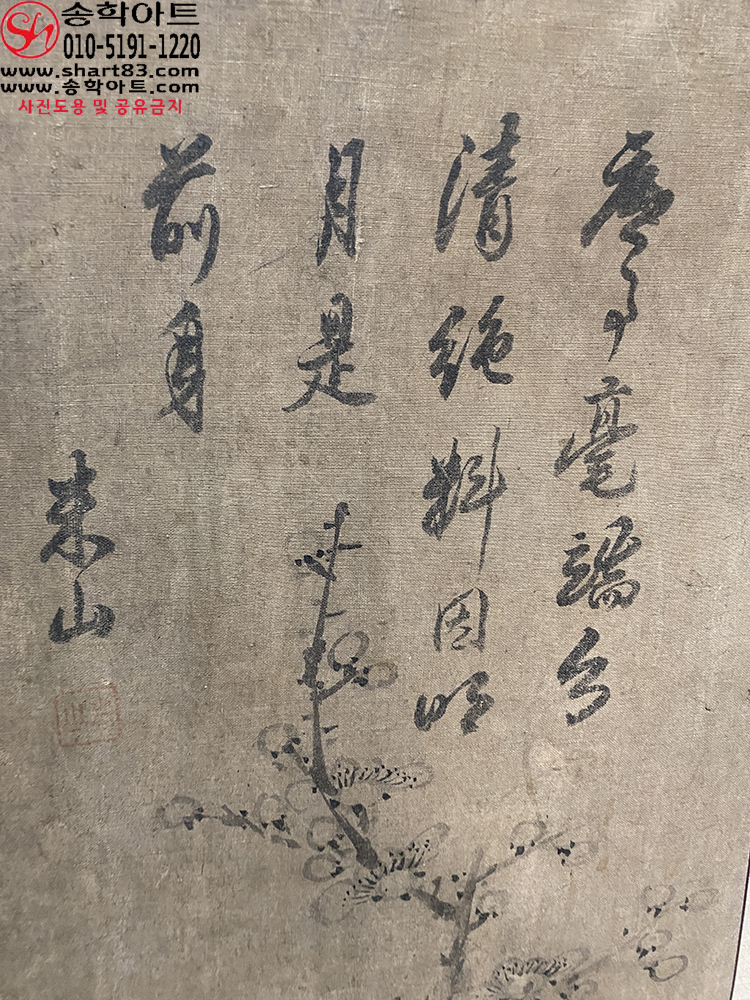 송학아트
010-5191-1220
www.shart83.com
www.송학아트.com
사진도용 및 공유금지
事毫端
清絕料因明
月是
前身
米山